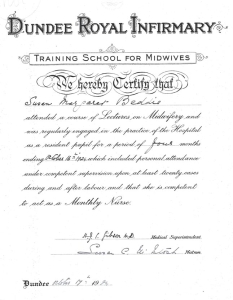 DUNDEE ROYAL INFIRMARY
TRAINING SCHOOL FOR MIDWIVES
We hereby Certify that
Susan Margaret
attended a course of Lectures on Midwifery and
was regularly engaged in the practice of the Hospital
as a resident pupil for a period of four months
ending October 16th which included personal attendance
under competent supervision upon at least twenty cases
during and after labour and that she is competent
to act as a Monthly Nurse.
Medical Superintendent
Matron
Dundee October 17th 19